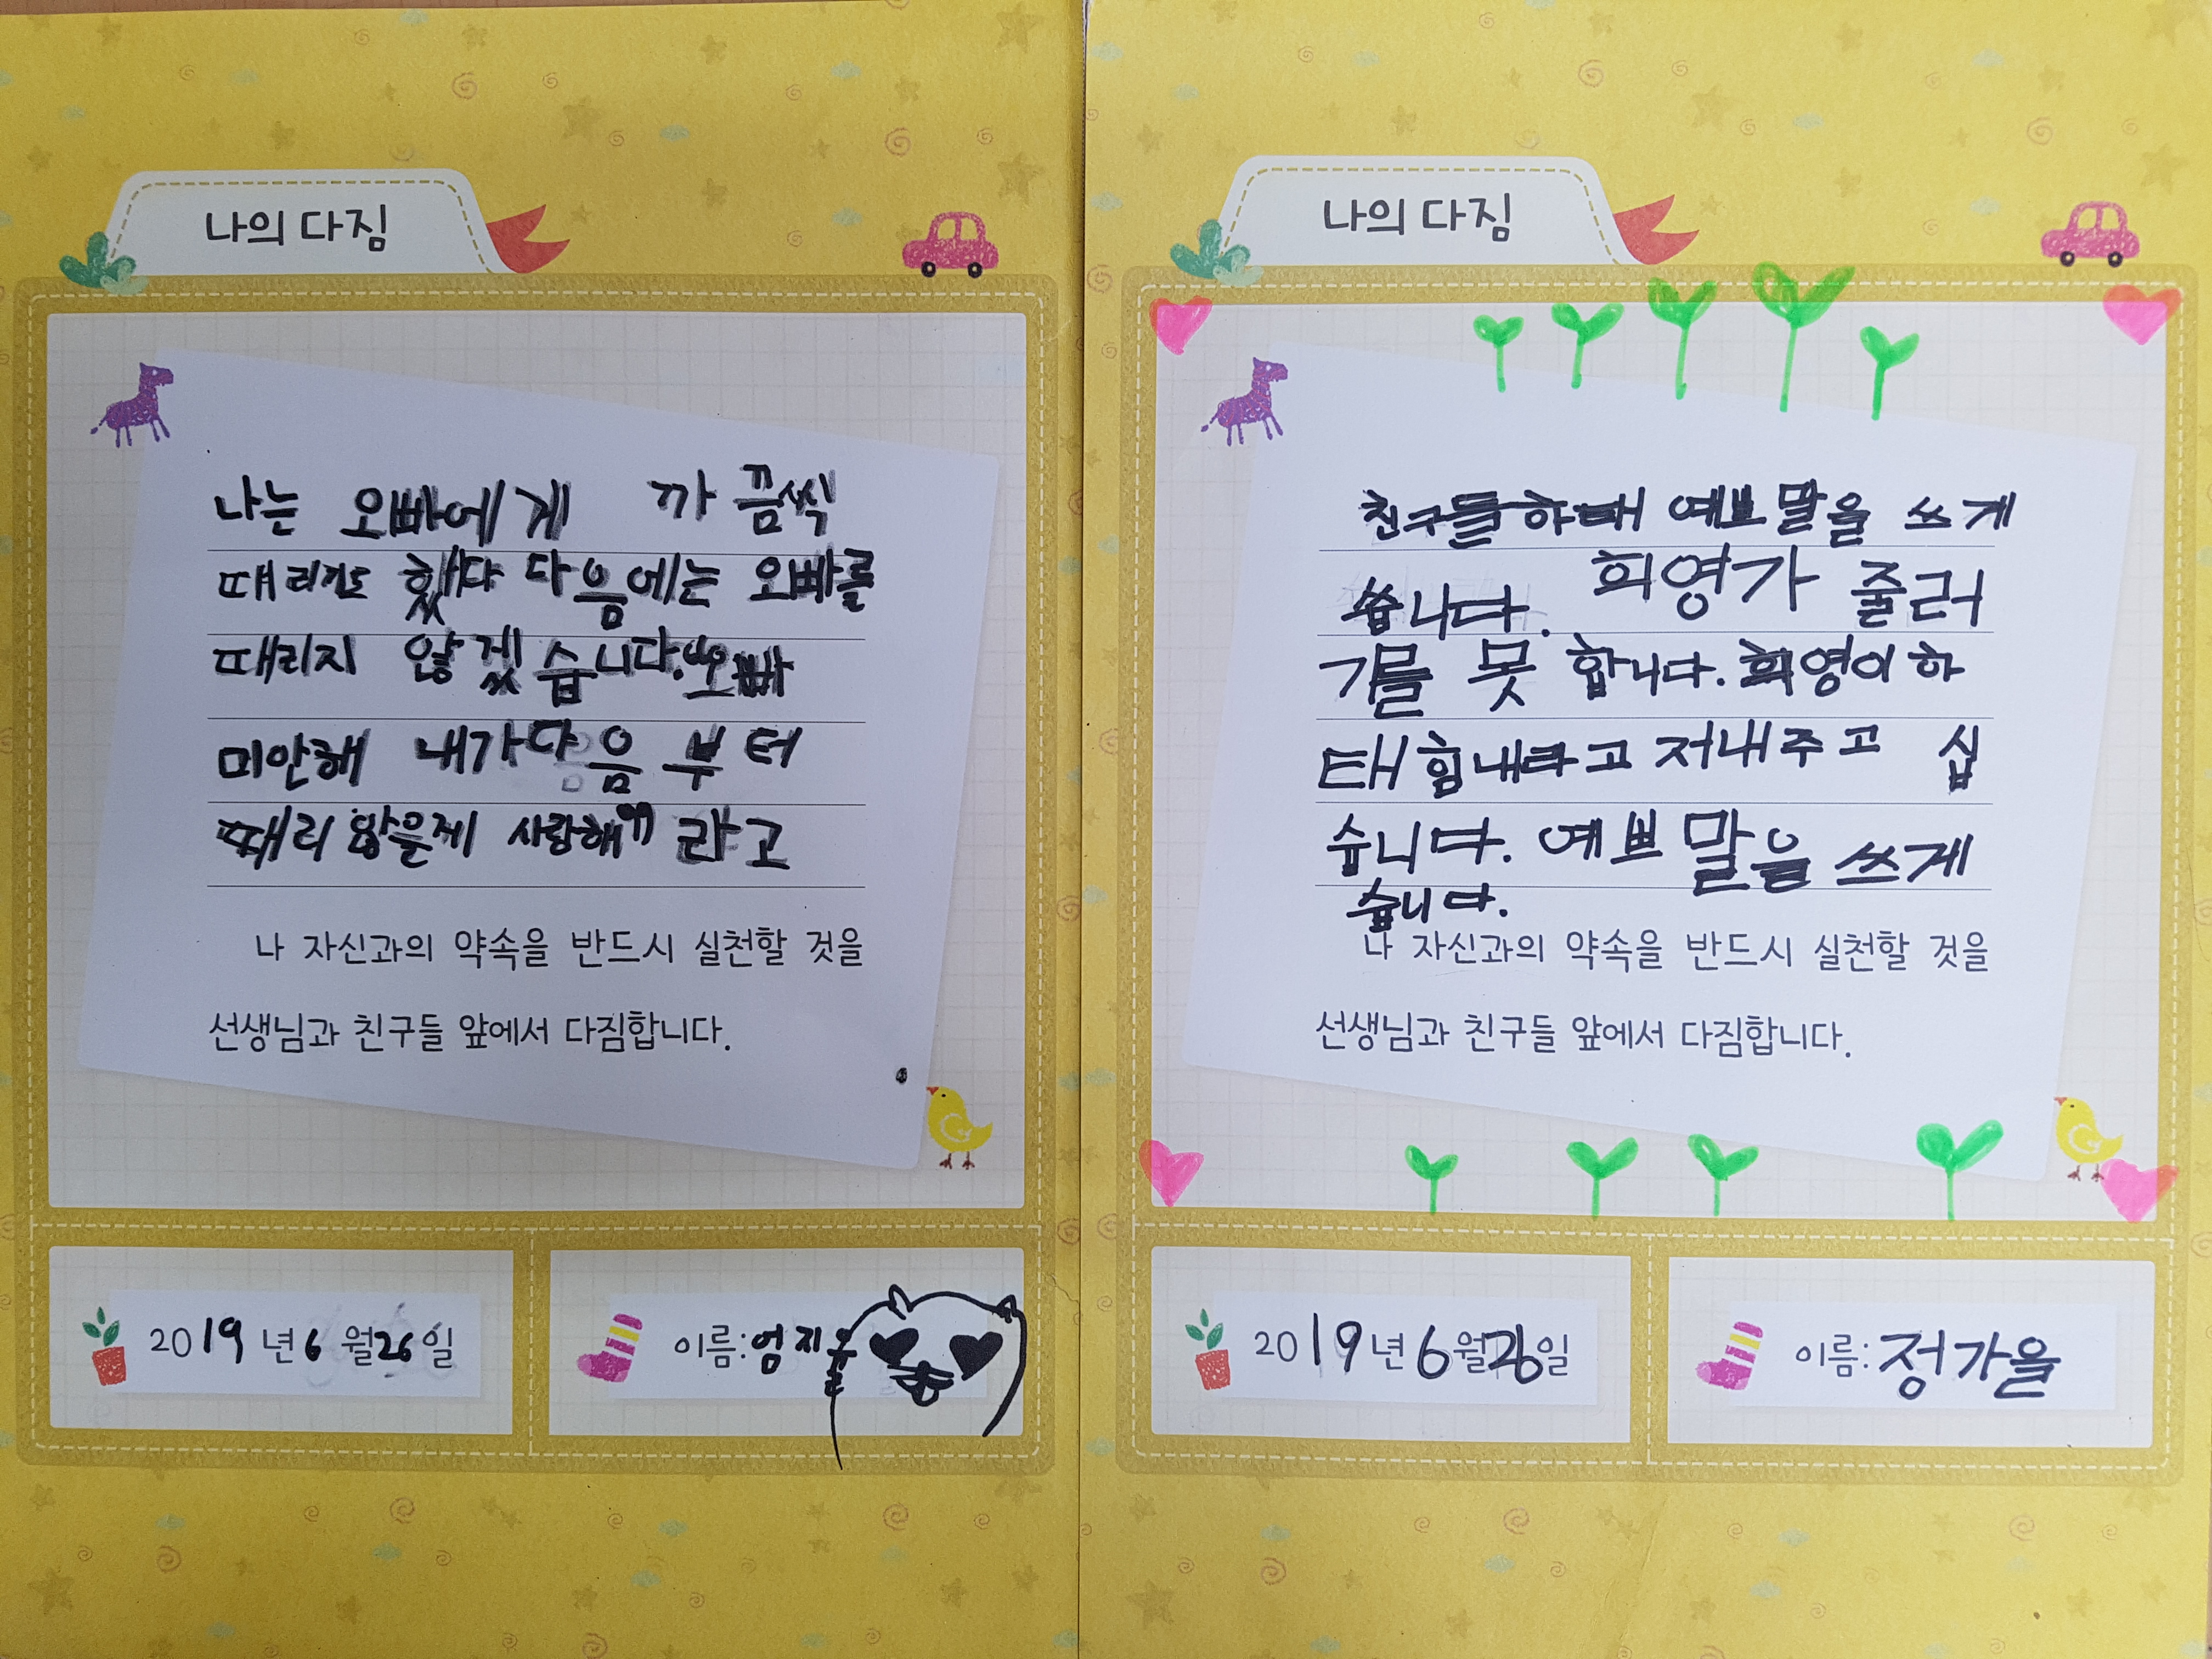 나의 다짐
나는 오빠에게 까끔씩
때리기도 했다 다음에는 오빠를
때리지 않겠습니다. "오빠
미안해 내가 다음 부터
때리 않을게 사랑해" 라고
나 자신과의 약속을 반드시 실천할 것을
선생님과 친구들 앞에서 다짐합니다.
2019년 6월 26일
이름: 엄지
나의 다짐
친구들하태 예쁘 말을 쓰게
씁니다. 희영가 줄러
기를 못 합니다. 희영이하
태 힘내라고 저내주고 십
습니다. 예쁘 말을 쓰게
습니다.
나 자신과의 약속을 반드시 실천할 것을
선생님과 친구들 앞에서 다짐합니다.
2019년 6월 26일
이름: 정가을